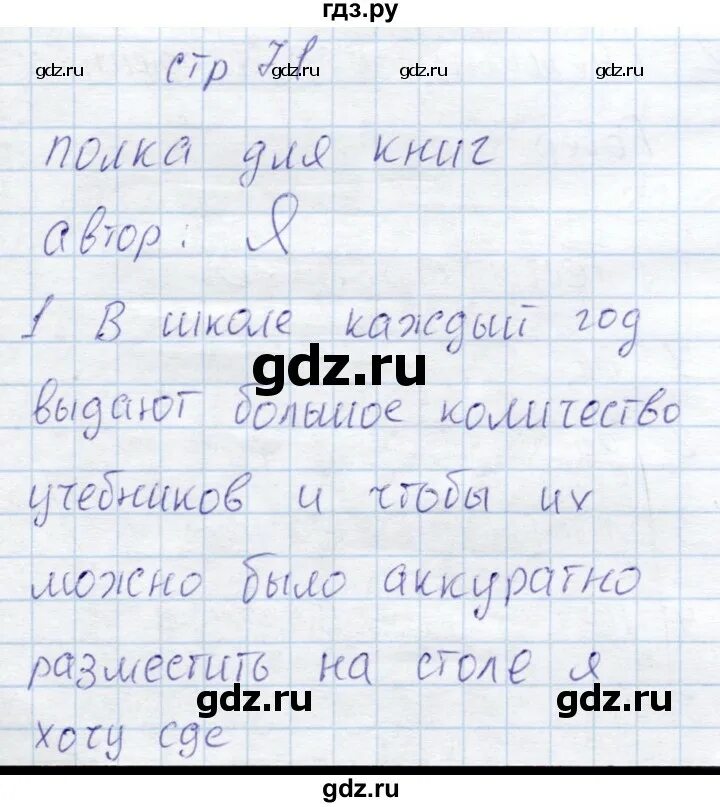 гдз.ру
стр 71
gdz.ru gdz.ru gdz.ru gdz.ru
полка для книг
автор: Я
1 В школе каждый год
gdz.ru
выдают большое количество
учебников и чтобы их
можно было аккуратно
разместить на столе я
gdz.ru gdz.ru
хочу сде
gdz.ru